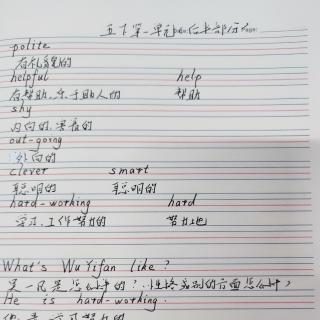 五下第一单元
polite
有礼貌的
helpful help
有帮助,乐于助人的 帮助
shy
内向的,害羞的
out-going
外向的
clever smart
聪明的 聪明的
hard-working hard
学习,工作努力的 努力地
What's Wu Yifan like?
是一凡是怎么样的?,性格类别的方面怎么样
He is hard-working.